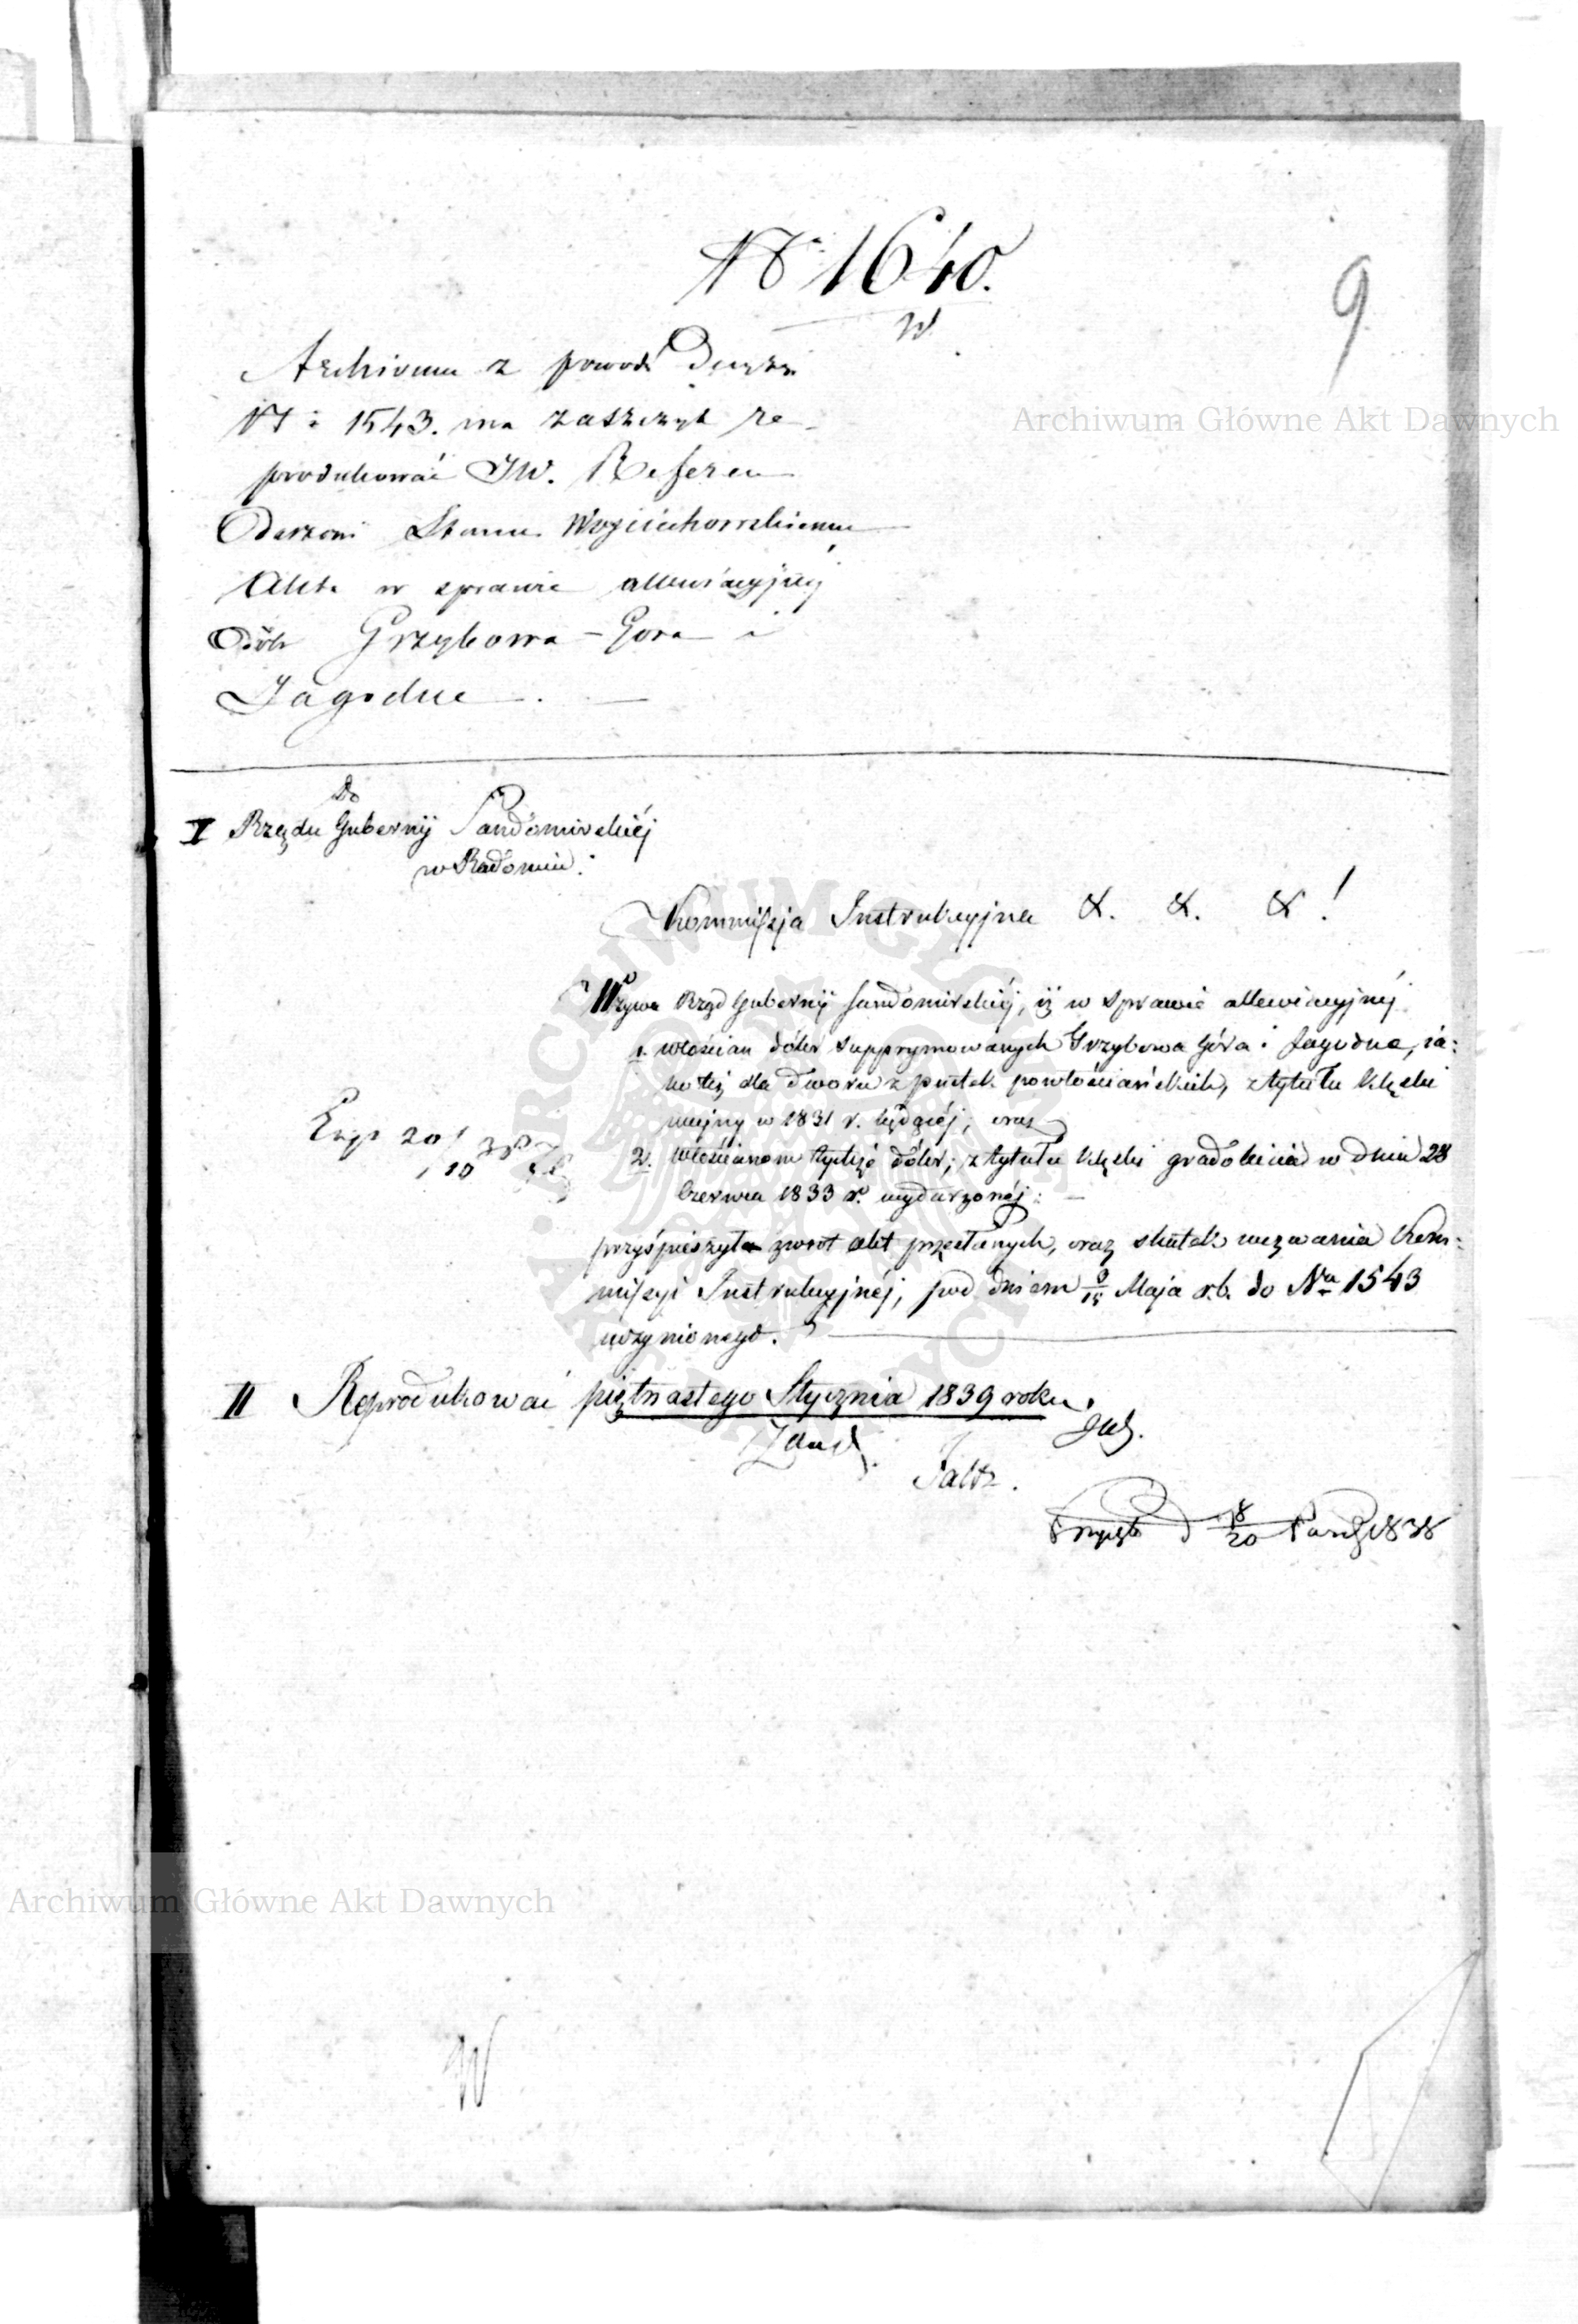 No 1640.
W
9
Archivum z powodu Decyzyi
N: 1543. ma zaszczyt re-
produkować JW. Referen
darzowi Stanu Woyciechowskiemu
Akta w sprawie allewiacyjnéj
Dóbr Grzybowa-Gora i
Jagodne.
Do
I Rządu Gubernij Sandomirskiéj
w Radomiu:
Kommissja Instrukcyjna &. &. &!
Wzywa Rząd Gubernij Sandomirskiéj, iż w sprawie allewiacyjnéj
1. włościan dóbr supprymowanych Grzybowa Góra i Jagodne, ja:
ko też dla dworu z pustek powłościańskich, z tytułu klęski
wojny w 1831 r. będącéj; oraz
2. włościanom tychże dóbr; z tytułu klęski gradobicia w dniu 28
Czerwca 1833 r. wydarzonéj:
przyśpieszyła zwrot akt przesłanych, oraz skutek wezwania Kom:
missyi Instrukcyjnéj, pod dniem 3/15 Maja r.b. do Nru 1543
uczynionego.
Exp 20/10 38
II Reprodukować piętnastego Stycznia 1839 roku.
8/20 Paźdz 1838
W
Archiwum Główne Akt Dawnych
Archiwum Główne Akt Dawnych
ARCHIWUM GŁÓWNE AKT DAWNYCH